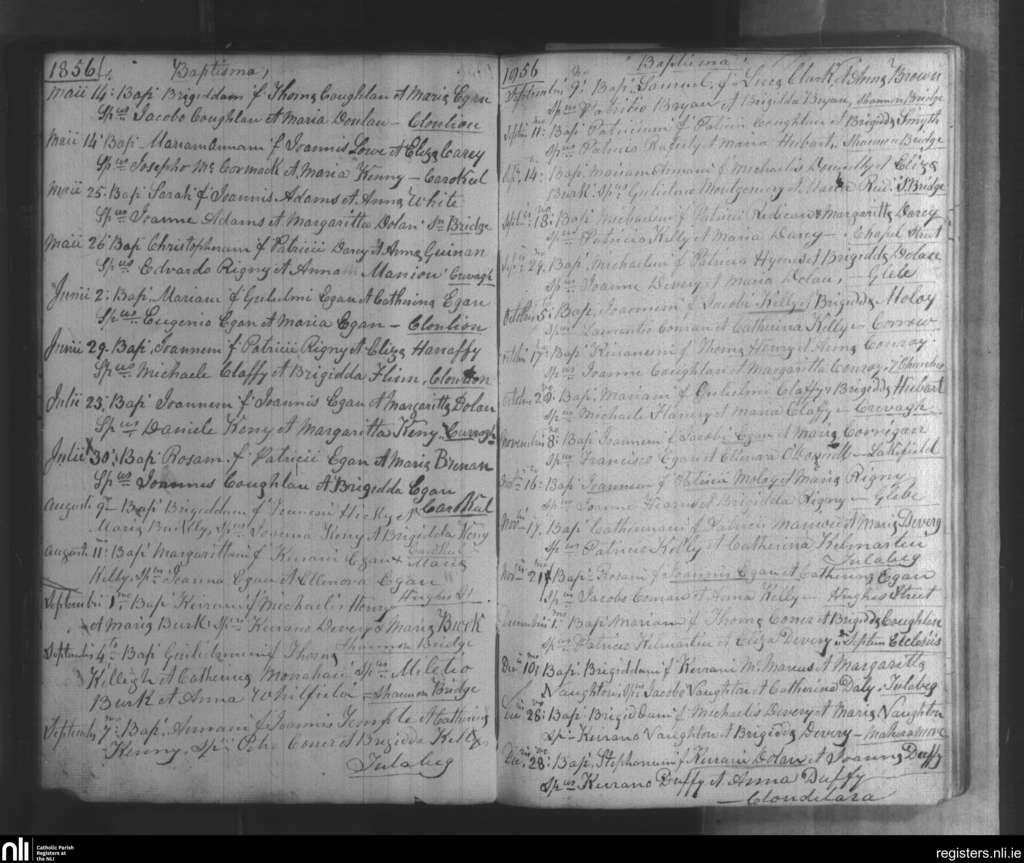 1856 Baptisma,
Maii 14: Bap: Brigeddam f. Thoma Coughlan et Maria Egan
Sp.us Jacobo Coughlan et Maria Doulan — Clonlion
Maii 14 Bap: Mariam Annam f. Joannis Lowe et Eliza Carey
Sp.us Josepho McCormack et Maria Kenny — CaroKeel
Maii 25 Bap: Sarah f. Joannis Adams et Anna White
Sp.us Joanne Adams et Margaritta Dolan Sn Bridge
Maii 26 Bap: Christophenam f. Patricii Darcy et Anna Guinan
Sp.us Edvardo Rigny et Anna Manion Crevagh
Junii 2: Bap. Mariam f. Gulielmi Egan et Catherina Egan
Sp.us Eugenio Egan et Maria Egan — Clonlion
Junii 29. Bap. Joannem f. Patricii Rigny et Eliza Hanaffy
Sp.us Michaele Claffy et Brigidda Flinn, Clonlion
Julii 23. Bap: Joannem f. Joannis Egan et Margaritta Dolan
Sp.us Daniele Keny et Margaritta Keny. Curragh
Julii 30. Bap: Rosam f. Patricii Egan et Maria Brenan
Sp.us Joannes Coughlan et Brigidda Egan
Augusti 9 Bap: Brigeddam f. Hicky et CaroKeel
Maria Buckly, Sp.us Joanna Keny et Brigidda Keny
Augusti 11: Bap: Margarittam f. Kerani Egan et Maria
Kelly, Sp.us Joanna Egan et Elenora Egan
Hughes St.
Septembris 1: Bap: Kerranum f. Michaelis Henry
et Maria Burk Sp.us Kerano Devery et Maria Burk
Shannon Bridge
Septembris 4: Bap: Gulielmum f. Thoma
Killigh et Catherina Monahan Sp.us Miletio
Burk et Anna — Shannon Bridge
Septembris 7: Bap: Annam f. Joannis Temple et Catherina
Kenny, Sp.us Petro Coner et Brigidda Kelly
Tulabeg
1956 Baptisma,
Septembris 9: Bap: Samuel f. Luca Clark et Anna Brown
Sp.us Bryan et Brigidda Bryan, Shannon Bridge
Septbris 11: Bap: Patricium f. Patricii Coughlan et Brigidda Smyth
Sp.us Patricio Raftely et Maria Hiebart, Shannon Bridge
14: Bap: Mariam Annam f. Michaelis Donnelly et Eliza
Burk. Sp.us Gulielmo Montgomery et Maria Reid. S. Bridge
Sept. 18: Bap: Michaelem f. Patricii et Margaritta Darcy
Sp.us Patricio Kelly et Maria Darcy — Chapel Street
Sep. 29. Bap: Michaelem f. Patricii Hynes et Brigidda Dolan
Sp.us Joanne Devery et Maria Dolan, — Glebe
Octobris 5: Bap: Joannem f. Jacobi Kelly et Brigidda Moloy
Sp.us Laurentio Coman et Catherina Kelly — Corrow
Octobris 17: Bap: Kieranum f. Thoma Henry et Anna Conroy
Sp.us Joanne Coughlan et Margaritta Conroy, 7 Churches
Octobris 20: Bap. Mariam f. Gulielmi Claffy et Brigidda Hiebart
Sp.us Michaele Flanery et Maria Claffy — Crevagh
Novembris 8: Bap: Joannem f. Jacobi Egan et Maria Corrigan
Sp.us Francisco Egan et Elenora — Lakefield
16: Bap: Joannem f. Patricii Moloy et Maria Rigny
Sp.us Joanne Kearns et Brigidda Rigny — Glebe
Nov. 17. Bap: Catherinam f. Patricii Manion et Maria Devery
Sp.us Patricio Kelly et Catherina Kilmarten
Tulabeg
Nov. 21 Bap: Rosam f. Joannis Egan et Catherina Egan
Sp.us Jacobo Coman et Anna Kelly — Hughes Street
Decembris 1: Bap: Mariam f. Thoma Coner et Brigidda Coughlan
Sp.us Patricio Kilmartin et Eliza Devery Septem Eclesiis
Decembris 10: Bap: Brigiddam f. Kierani McManus et Margaritta
Naughton, Sp.us Jacobo Naughton et Catherina Daly. Tulabeg
Dec. 28: Bap: Brigiddam f. Michaelis Devery et Maria Naughton
Sp.us Kierano Naughton et Brigidda Devery —
Dec. 28: Bap: Stephanum f. Kierani Dolan et Joanna Duffy
Sp.us Kierano Duffy et Anna Duffy
— Clondelara
nli Catholic Parish Registers at the NLI
registers.nli.ie